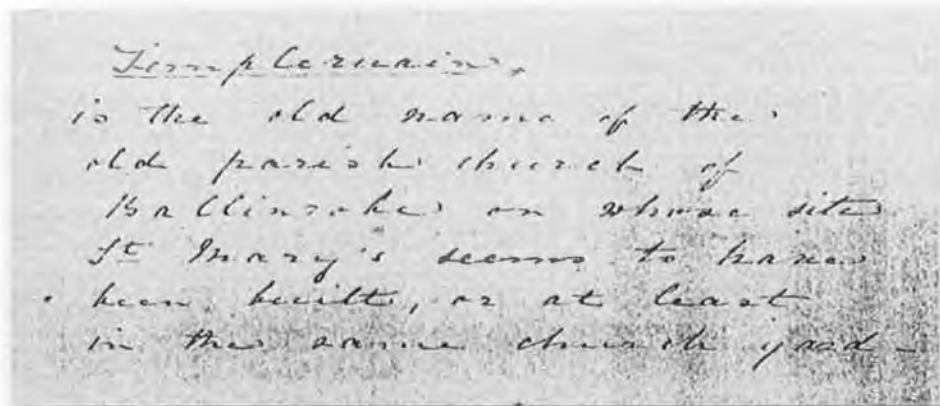 Templeruain,
is the old name of the
old parish church of
Ballinrobe on whose site
St Mary's seems to have
been built, or at least
in the same church yard –